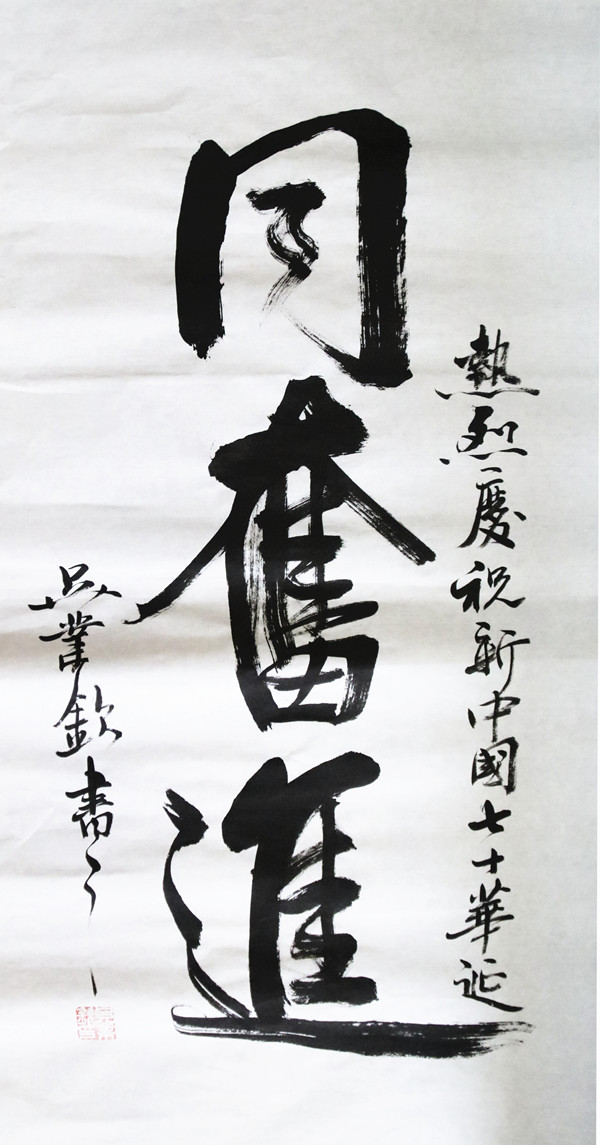 熱烈慶祝新中國七十華延
同奮進
吳業欽書